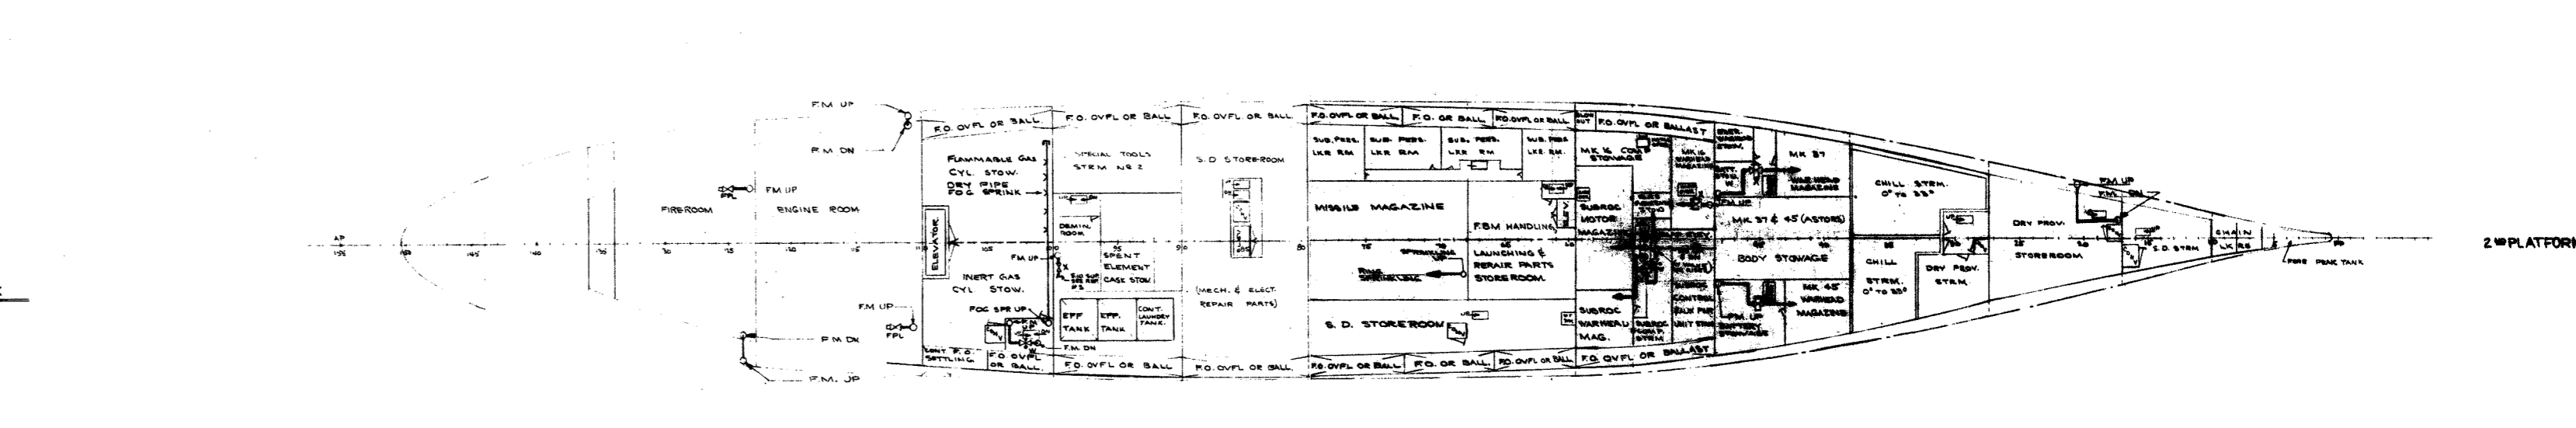 F.M UP
F.M DN
F.M UP
FPL
FIREROOM
ENGINE ROOM
AP
155
150
145
140
135
130
125
120
115
110
105
100
95
90
80
75
70
65
60
F.M UP
FPL
F.M DN
F.M. UP
F.O. OVFL OR BALL.
FLAMMABLE GAS
CYL. STOW.
DRY PIPE
FOG SPRINK
ELEVATOR
INERT GAS
CYL. STOW.
FOG SPR UP
F.M. DN
CONT. F.O.
SETTLING
F.O. OVFL
OR BALL.
F.O. OVFL OR BALL
SPECIAL TOOLS
STRM NR 2
DEMIN.
ROOM
F.M UP
SPENT
ELEMENT
CASK STOW.
EFF
TANK
EFF.
TANK
CONT.
LAUNDRY
TANK.
F.O. OVFL OR BALL
F.O. OVFL OR BALL.
S.D STOREROOM
(MECH. & ELECT.
REPAIR PARTS)
F.O. OVFL OR BALL.
F.O. OVFL OR BALL
F.O. OR BALL.
F.O. OVFL OR BALL
SUB. PERS.
LKR RM
SUB. PERS.
LKR RM
SUB. PERS.
LKR RM
SUB. PERS.
LKR. RM.
MISSILE MAGAZINE
F.B.M HANDLING,
LAUNCHING &
REPAIR PARTS
STOREROOM
S. D. STOREROOM
F.O. OVFL OR BALL
F.O. OR BALL.
F.O. OVFL OR BALL
F.O. OVFL OR BALLAST
MK 16 COMP
STOWAGE
MK 16
WARHEAD
MAGAZINE
SUBROC
MOTOR
MAGAZINE
SUBROC
WARHEAD
MAG.
SUBROC
COMP.
STRM
SUBROC
CONTROL
UNIT STRM
F.O. OVFL OR BALLAST
MK 37
WARHEAD
MAGAZINE
F.M UP
MK 37 & 45 (ASTORS)
BODY STOWAGE
MK 45
WARHEAD
MAGAZINE
F.M. UP
BATTERY
STOWAGE
CHILL STRM.
0° TO 33°
CHILL
STRM.
0° TO 33°
DRY PROV.
STRM.
DRY PROV.
STOREROOM
25
20
15
F.M. UP
F.M. DN
S.D. STRM
CHAIN
LKRS
FORE PEAK TANK
2ND PLATFORM